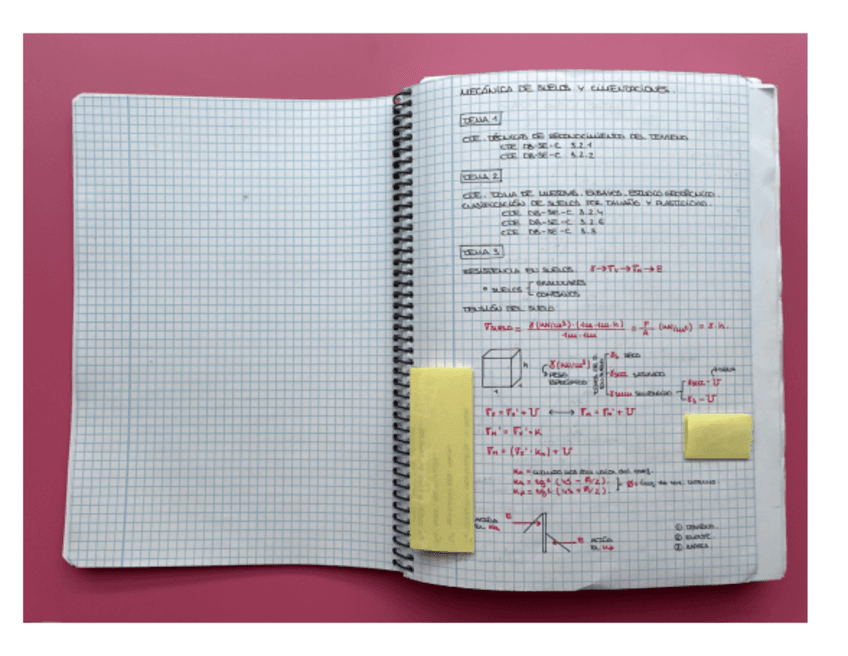 MECÁNICA DE SUELOS Y CIMENTACIONES.
TEMA 1
CTE. TÉCNICAS DE RECONOCIMIENTO DEL TERRENO
CTE DB-SE-C 3.2.1
CTE DB-SE-C 3.2.2
TEMA 2
CTE. TOMA DE MUESTRAS. ENSAYOS. ESTUDIO GEOTÉCNICO.
CLASIFICACIÓN DE SUELOS POR TAMAÑO Y PLASTICIDAD.
CTE DB-SE-C 3.2.4
CTE DB-SE-C 3.2.6
CTE DB-SE-C 3.3
TEMA 3
RESISTENCIA EN SUELOS.
* SUELOS { GRANULARES
COHESIVOS
TENSIÓN DEL SUELO
σSUELO = γ(kN/m³)·(1m·1m·h) / 1m·1m = P/A (kN/m²) = γ·h.
h
γ(kN/m³)
PESO
ESPECÍFICO
SECO
SATURADO
SUMERGIDO
γsat - U
σz = σz' + U ⟷ σH = σH' + U
σH' = σz' · K
σH = (σz' · KH) + U
KA = tg² (45 - Ø/2)
KP = tg² (45 + Ø/2)
ACTÚA
EL KA
E
ACTÚA
EL KP
①
② EMPUJE
③